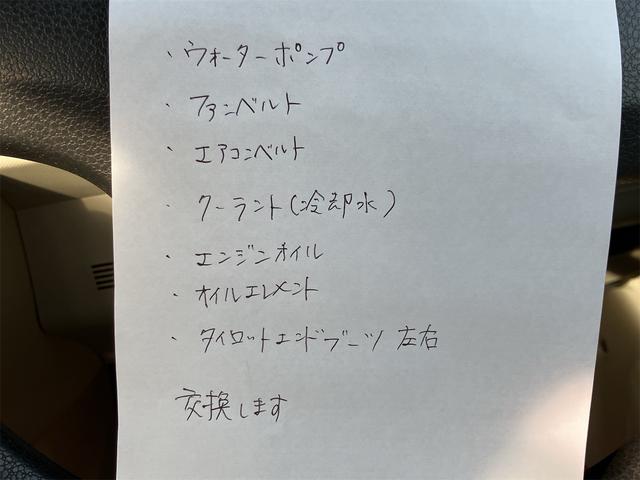 ・ウォーターポンプ
・ファンベルト
・エアコンベルト
・クーラント(冷却水)
・エンジンオイル
・オイルエレメント
・タイロットエンドブーツ 左右
交換します